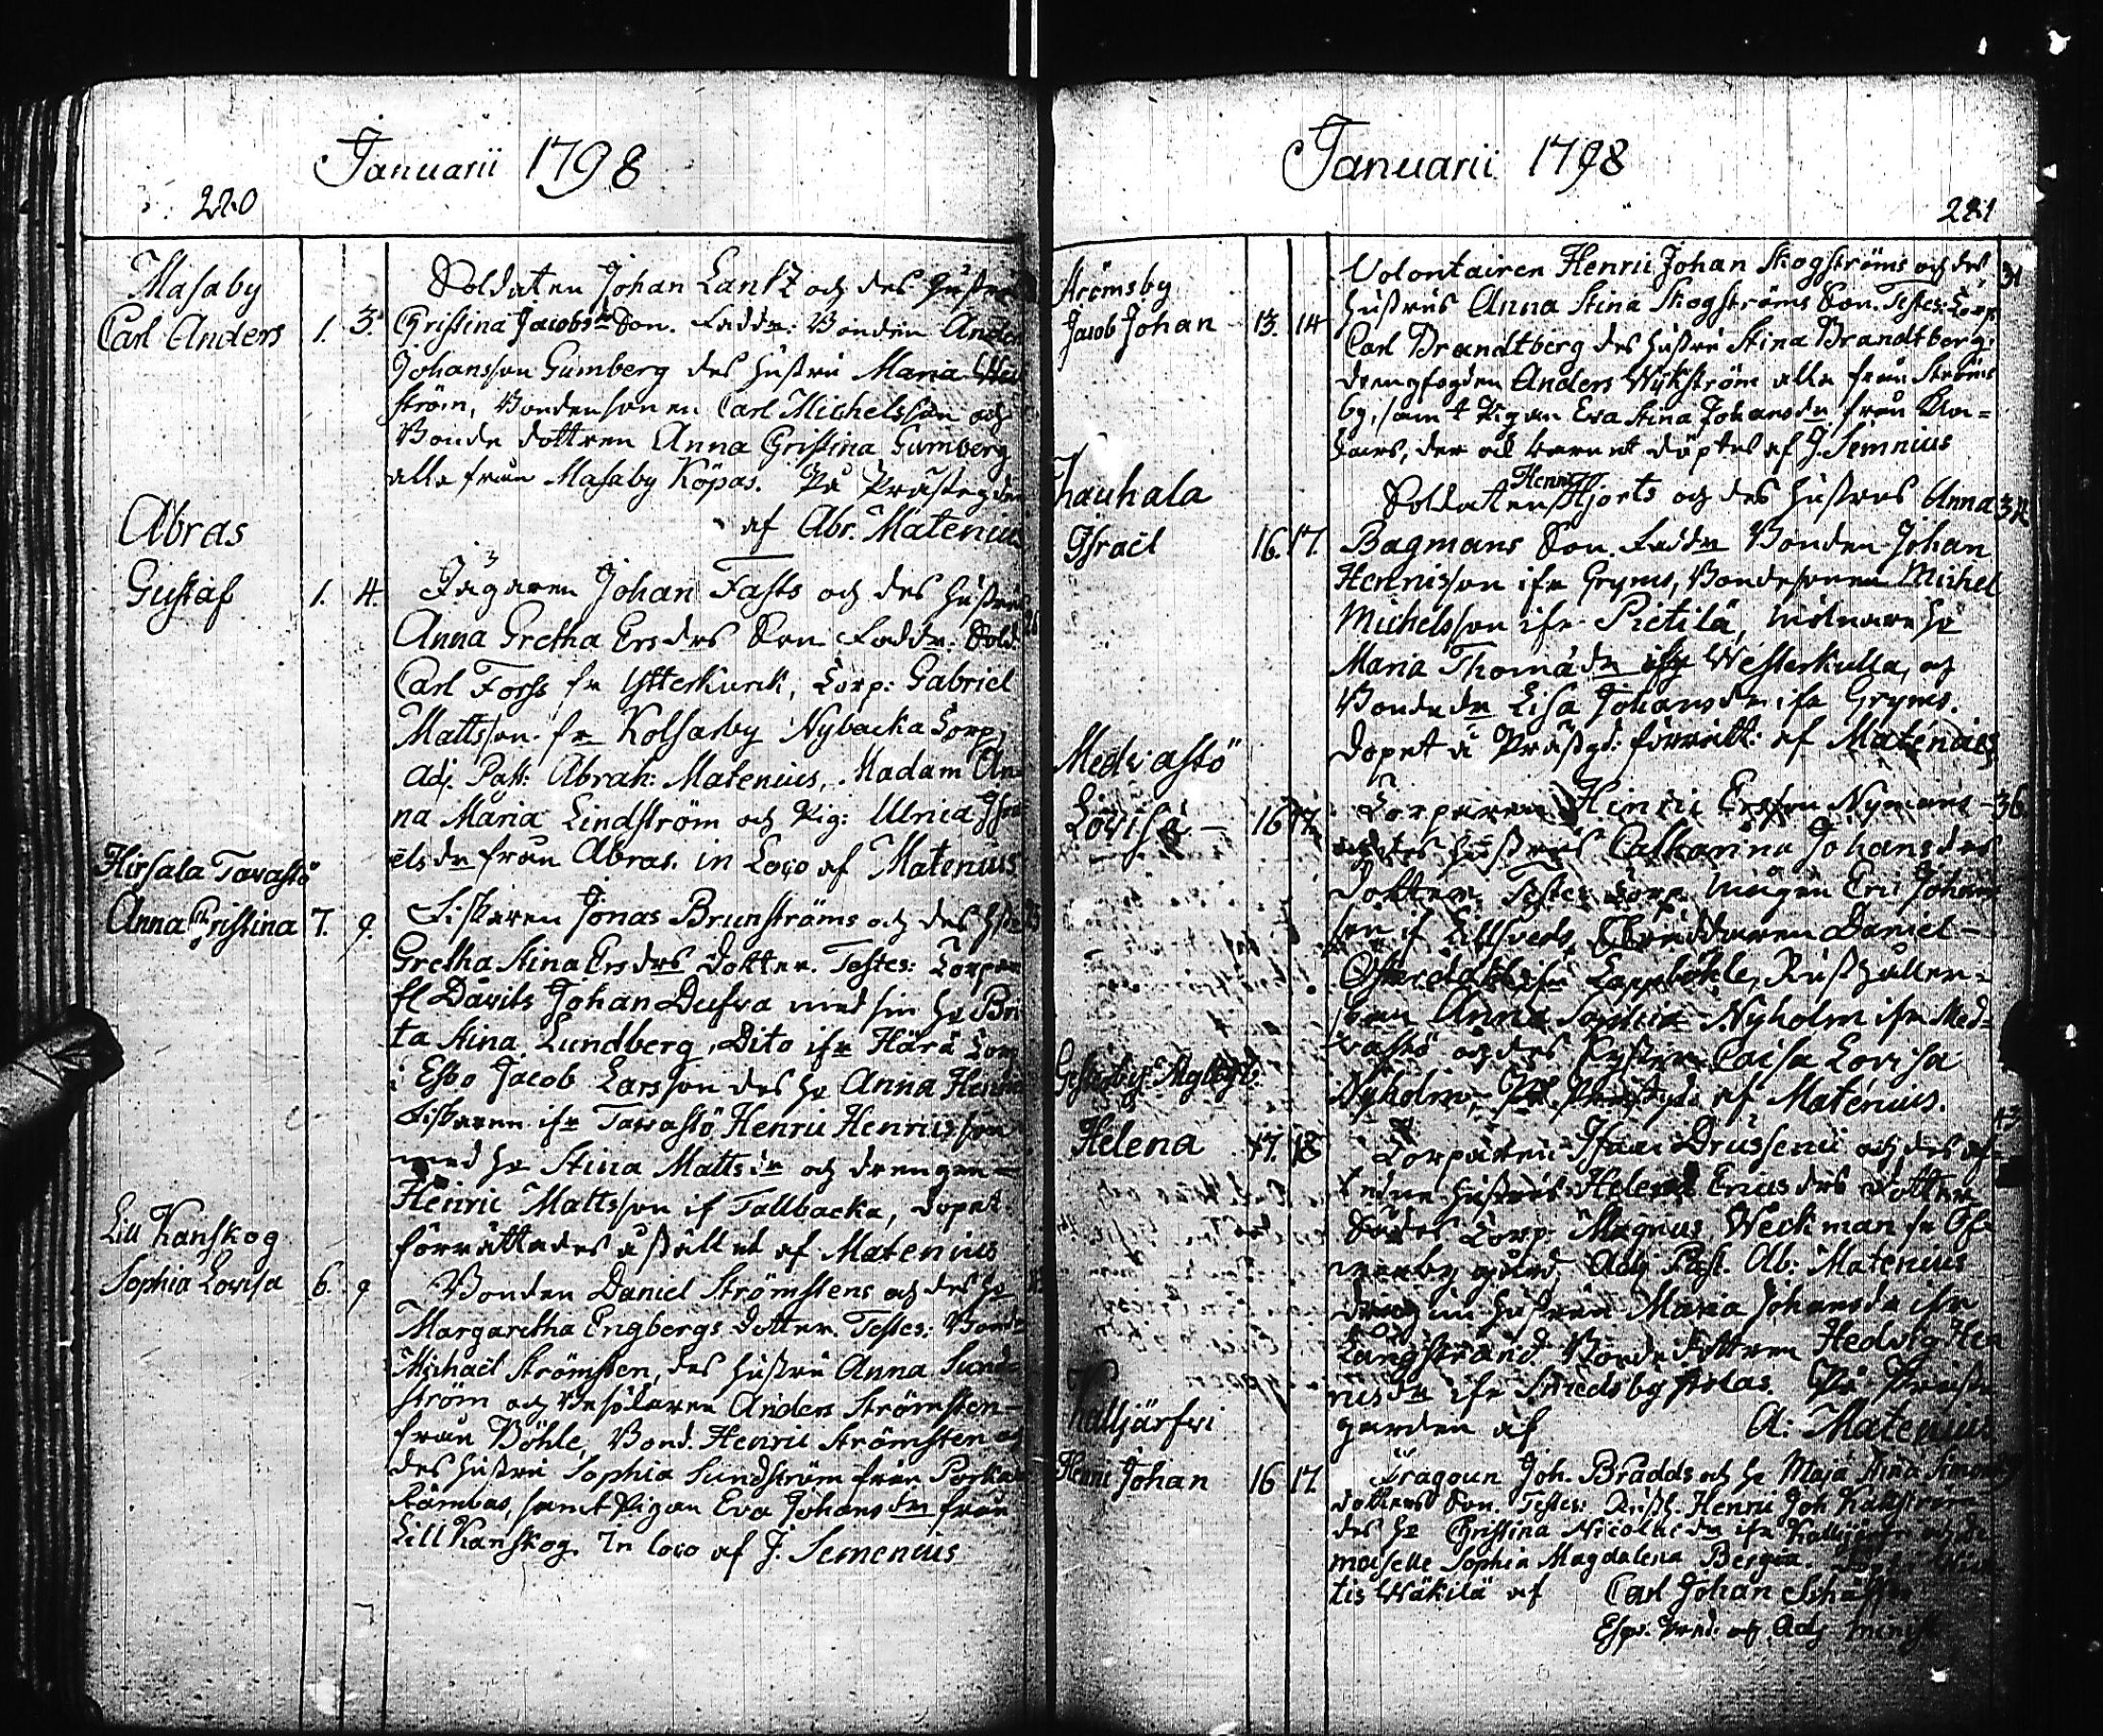 Januarii 1798
220
Masaby
Carl Anders 1. 3.
Soldaten Johan Lantz och des hustru
Christina Jacobsdr Son. Faddr: Bonden Anders
Johansson Gumberg des hustru Maria
ström, Bondesonen Carl Michelsson och
Bonde dottren Anna Christina Gumberg
alla från Masaby Köpas. På Prästegden
af Abr. Matenius
Abras
Gustaf 1. 4.
Jägaren Johan Fasts och des hustrus
Anna Gretha Ersdrs Son Faddr: Sold.
Carl Forss fr Ytterkurk, Torp: Gabriel
Mattsson fr Kolsarby Nybacka Torp,
Adj. Past: Abrah: Matenius, Madam An-
na Maria Lindström och Pig: Ulrica Isra
ëls dr från Abras. in Loco af Matenius
Hirsala Tavastö
Anna Christina 7. 9.
Fiskaren Jonas Brunströms och des hstr
Gretha Stina Ersdrs Dotter. Testes: Torpar
fl Davits Johan Dufva med sin hr Bri
ta Stina Lundberg, Dito ifr Härä Torp
i Esbo Jacob Larsson des hr Anna
Fiskaren ifr Tavastö Henric Henricsson
med hr Stina Mattsdr och drengen
Henric Mattsson if Tallbacka, dopet
förrättades å stället af Matenius
Lill Kanskog
Sophia Lovisa 6. 9
Bonden Daniel Strömstens och des hr
Margaretha Engbergs Dotter. Testes: Bond:
Michaël Strömsten, des hustru Anna Sund-
ström och Besökaren Anders Strömsten
från Böhle, Bond. Henric Strömsten och
des hustru Sophia Sundström från Porkala
Rämbas, samt Pigan Eva Johansdr från
Lill Kanskog. In loco af J. Semenius
Januarii 1798
221
Strömsby
Jacob Johan 13. 14
Volontairen Henric Johan Skogströms och des 31
hustrus Anna Stina Skogströms Son. Testes: Torp
Carl Brandtberg des hustru Stina Brandtberg,
drengfogden Anders Wikström alla från Ströms
by, samt Pigan Eva Stina Johansdr från
der ock barnet döptes af J. Semnius
Thauhala
Israel 16. 17.
Henric
Soldaten Hjorts och des hustrus Anna 32
Bagmans Son. Faddr Bonden Johan
Henricsson ifr Gryms, Bondesonen Michel
Michelsson ifr Pietilä, Mölnare hr
Maria Thomædr ifr Westerkulla, och
Bondedr Lisa Johansdr ifr Gryms.
Dopet å Prästgd: förrätt: af Matenius
Medvastö
Lovisa 16 17.
Torparen Hinric Ersson Nymans 36
och des hustrus Catharina Johansdrs
Dotter. Testes: Torp. Mågen Eric Johans
son if Lillsveds, Daniel
ifr Lappböhle, Rusthållar-
Anna Sophia Nyholm ifr Med-
vastö och des Syster Caisa Lovisa
Nyholm, På Prästgd: af Matenius.
Gesterby Nybygd:
Helena 17. 18
Torparen Isaac Drussenii och des af-
ledne hustrus Helena Ericsdrs Dotter
Torp. Magnus Weckman fr Of-
Adj Past. Ab: Matenius
hustrun Maria Johansdr ifr
Långstrand. Bonde dottren Hedvig Hen
ricsdr ifr Smedsby Stolas. På Prästa
garden af A: Matenius
Kalljärfvi
Henric Johan 16 17.
Dragoun Joh. Brådds och hr Maja Stina Simons
dotters Son. Testes: Rusth. Henric Joh Kallström
des hr Christina Nicolaidr ifr Kalljärfvi och de
moiselle Sophia Magdalena Bergea.
tis Wäkilä af Carl Johan
och Adj